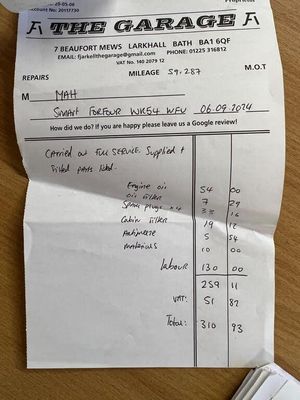 Proprietor
29-05-06
Account No: 20177730
THE GARAGE
7 BEAUFORT MEWS LARKHALL BATH BA1 6QF
EMAIL: fjarkellthegarage@gmail.com PHONE: 01225 316812
VAT No. 140 2079 12
REPAIRS MILEAGE 59,287 M.O.T
M MAH
SMART FORFOUR WK54 WFV 06.09.2024
How did we do? If you are happy please leave us a Google review!
CARRIED OUT FULL SERVICE SUPPLIED +
FITTED PARTS listed.
Engine oil 54 00
Oil Filter 7 29
Spark plugs x4 33 16
Cabin Filter 19 12
Antifreeze 5 54
Materials 10 00
Labour 130 00
259 11
VAT: 51 82
Total: 310 93